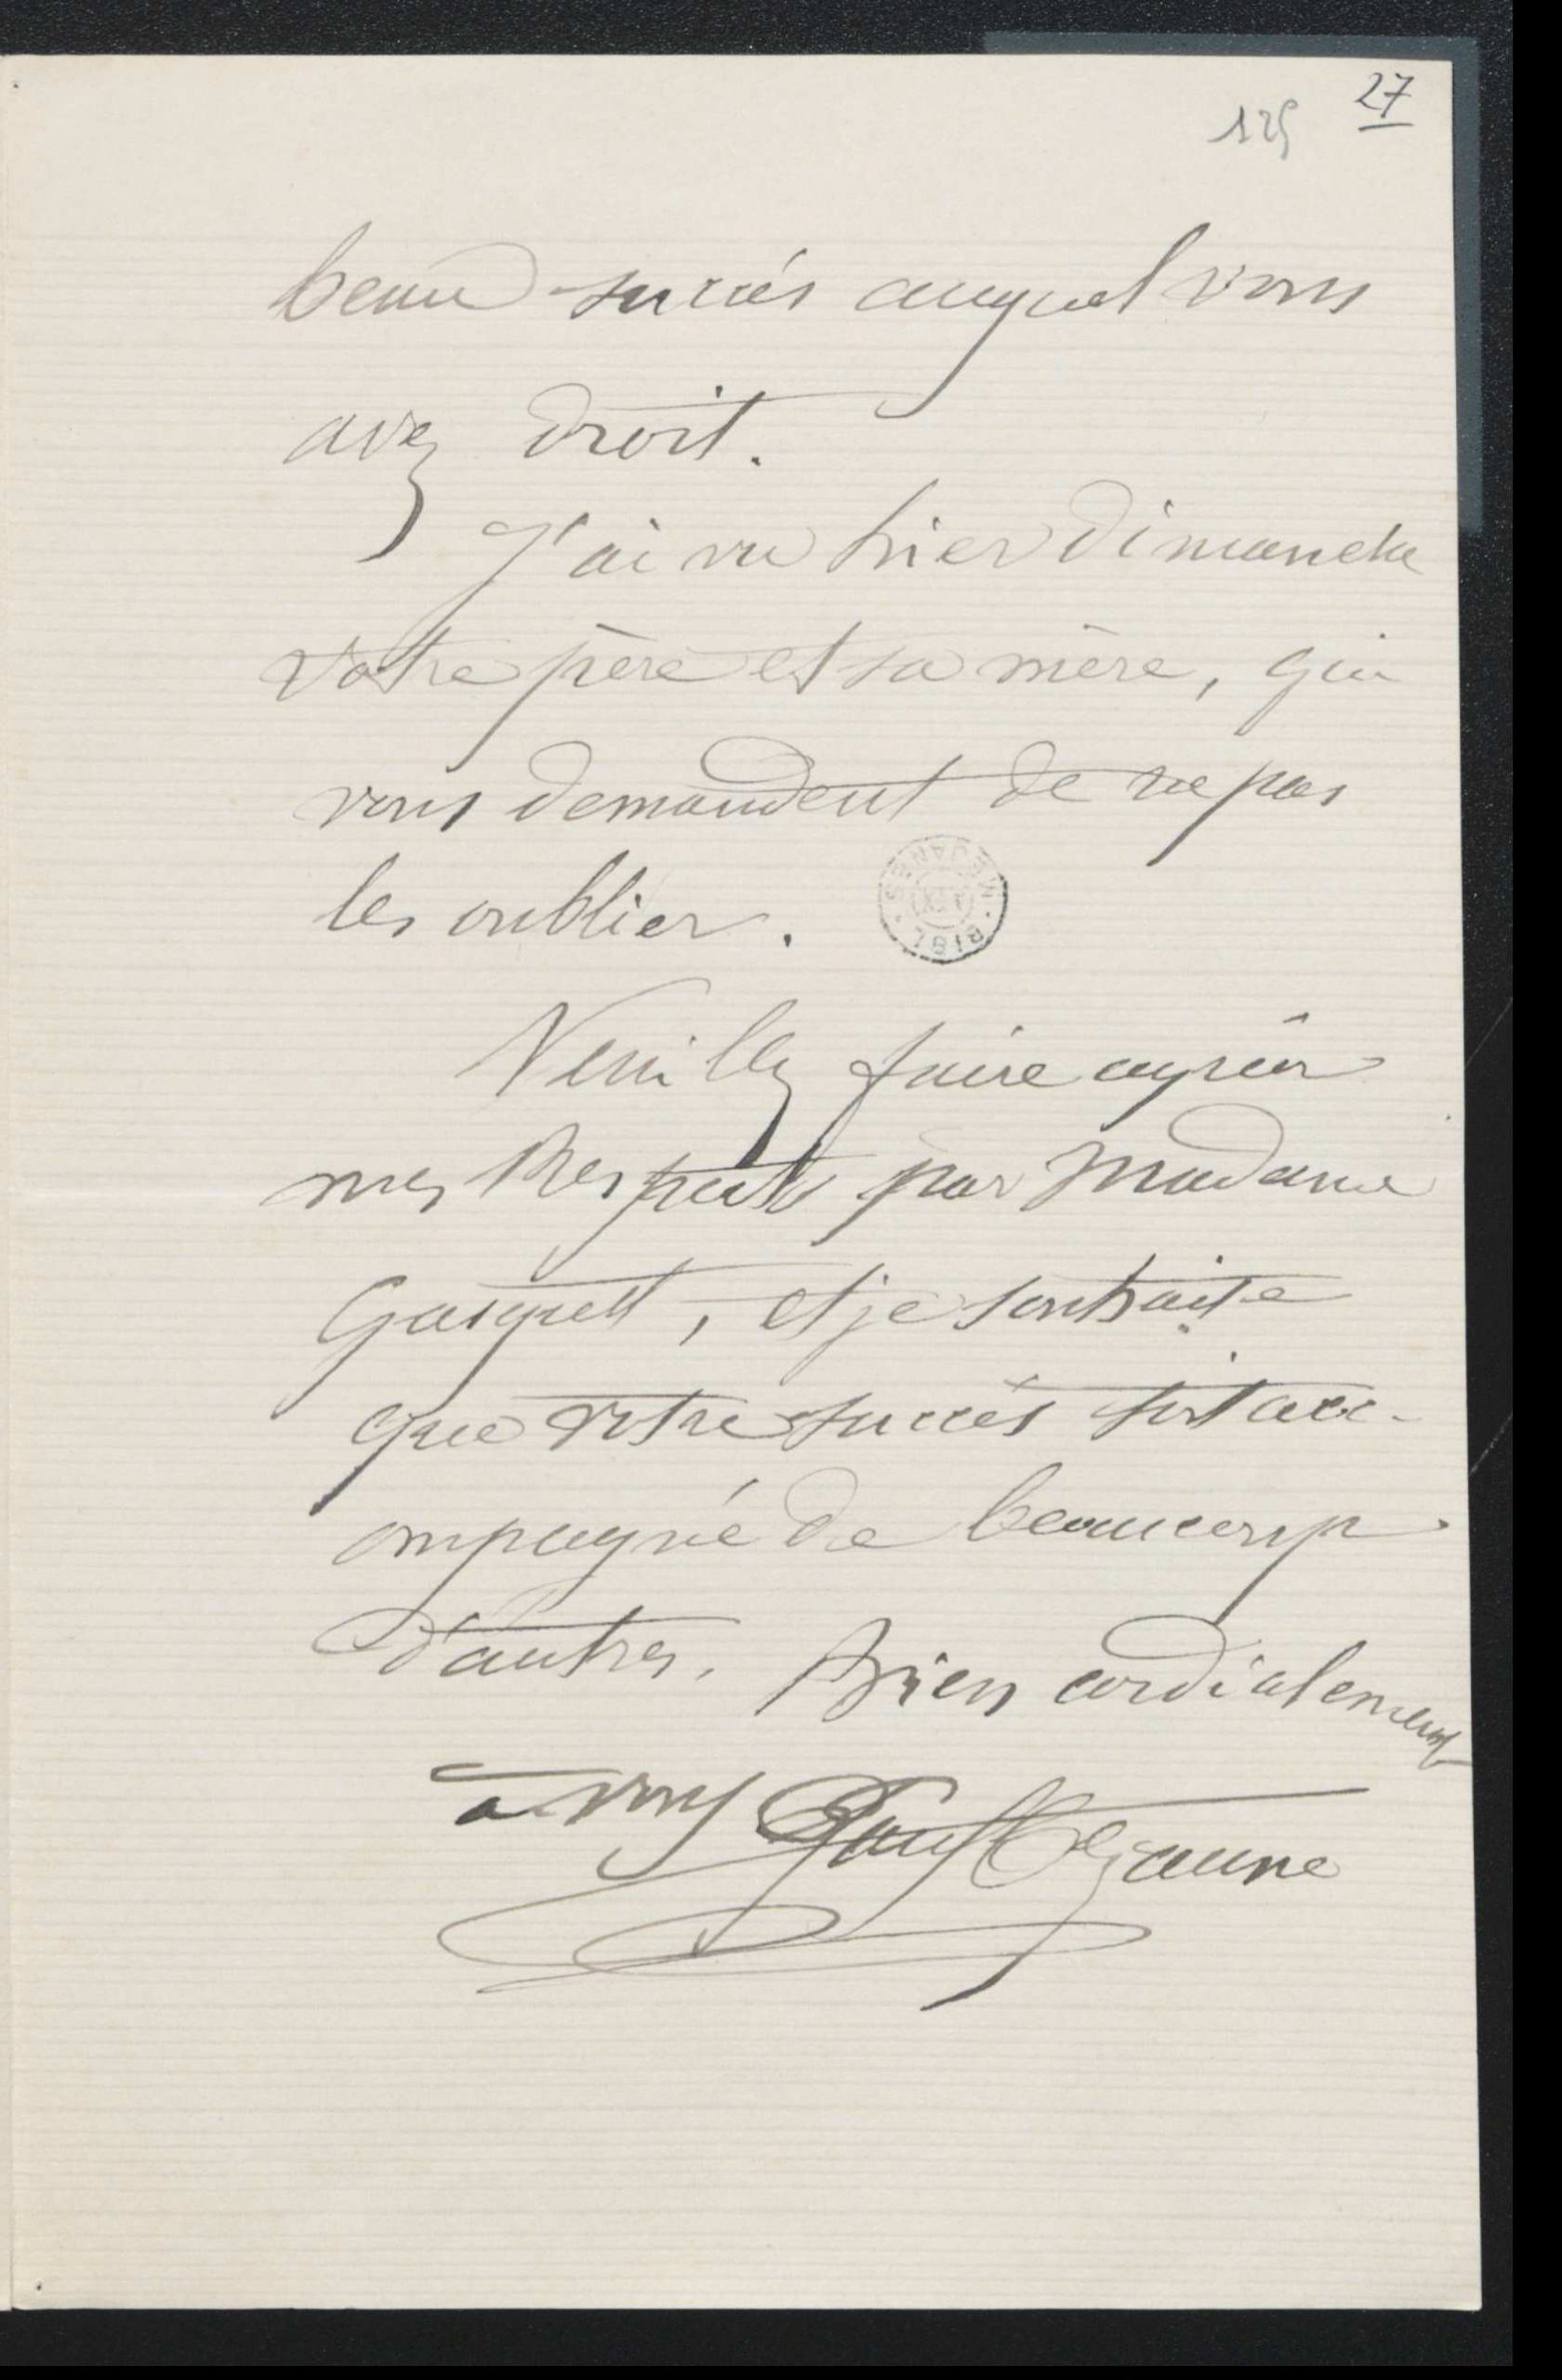 27
125
beau succès auquel vous
avez droit.
J'ai vu hier dimanche
votre père et sa mère, qui
vous demandent de ne pas
les oublier.
MEJANES
BIBL
AIX
Veuillez faire agréer
mes Respects par Madame
Gasquet, et je souhaite
que votre succès soit acc-
ompagné de beaucoup
d'autres. Bien cordialement
à vous Paul Cezanne